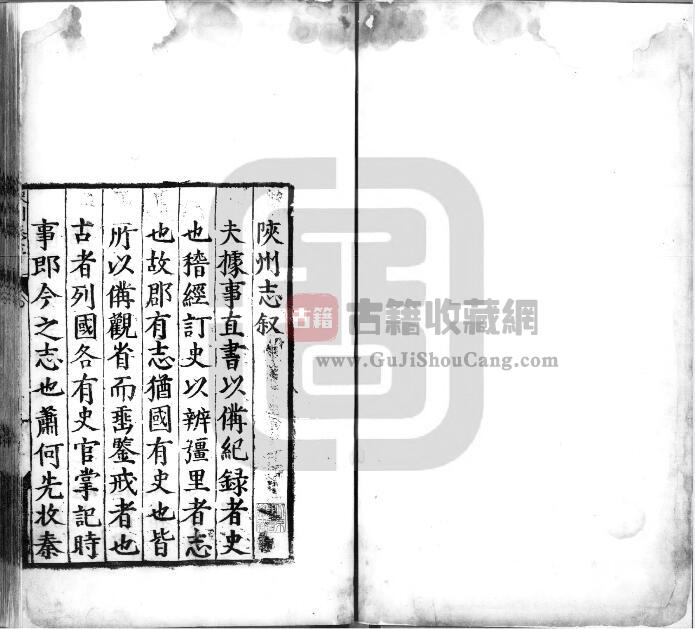 陝州志叙
夫據事直書以備紀録者史
也稽經訂史以辨彊里者志
也故郡有志猶國有史也皆
所以備觀省而埀鑒戒者也
古者列國各有史官掌記時
事即今之志也蕭何先收秦
古籍
古籍收藏網
www.GuJiShouCang.com